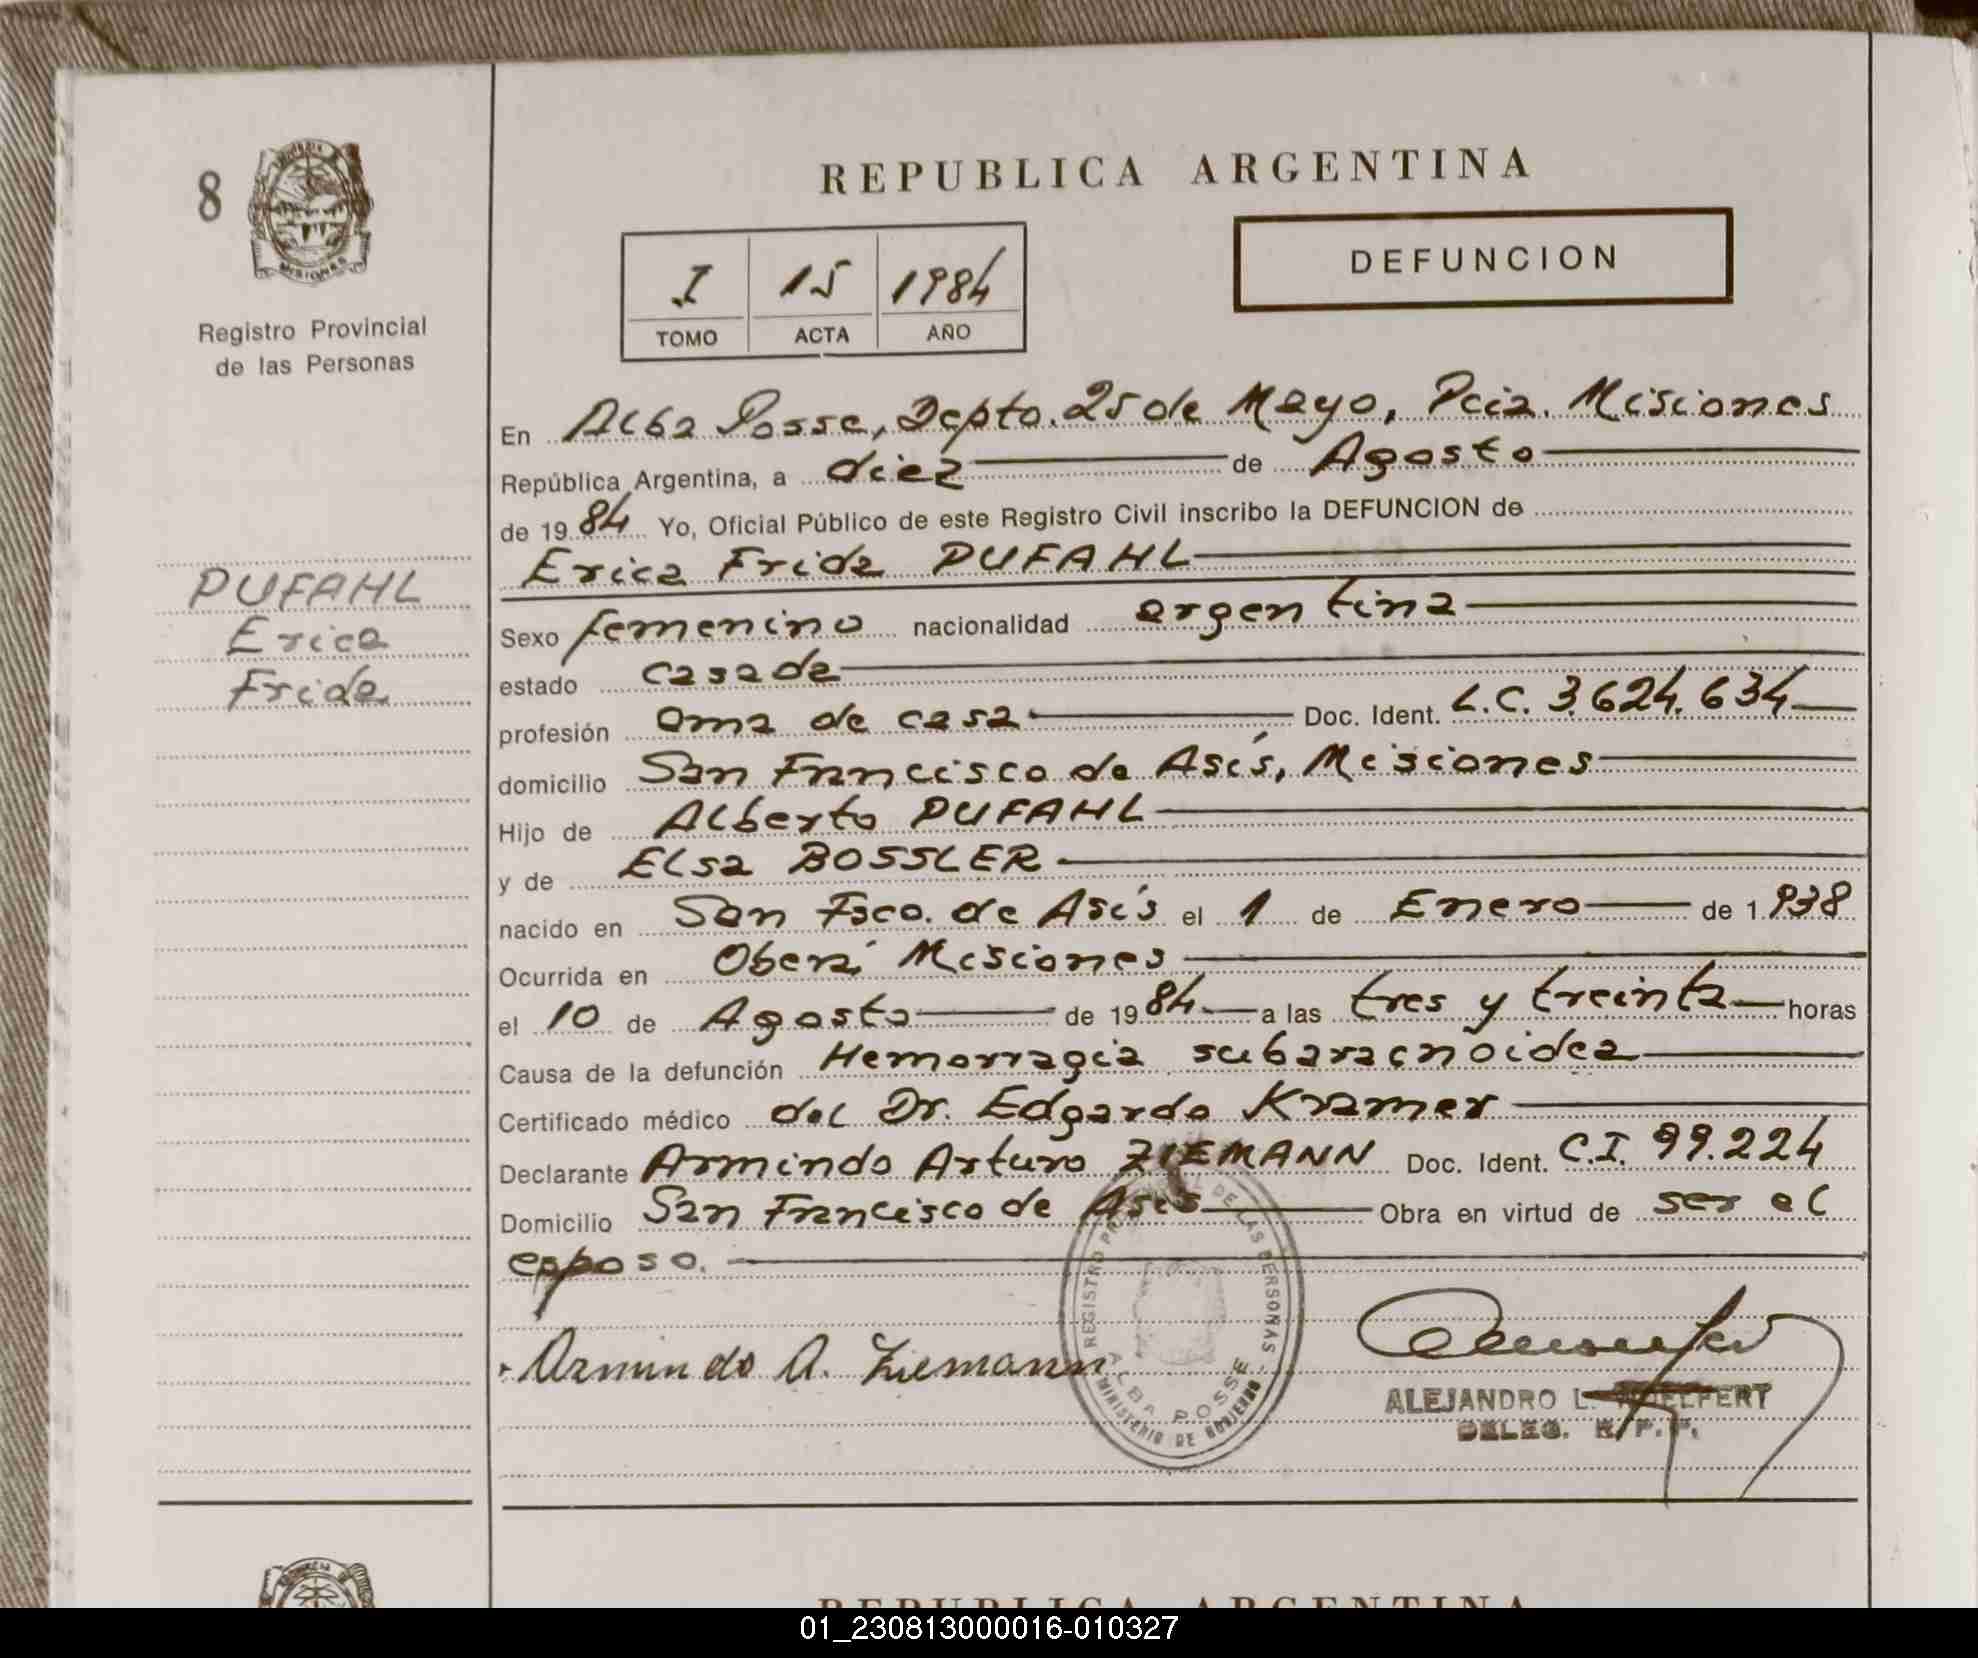 8
PROVINCIA DE
MISIONES
Registro Provincial
de las Personas
REPUBLICA ARGENTINA
I 15 1984
TOMO ACTA AÑO
DEFUNCION
En Alba Posse, Depto. 25 de Mayo, Pcia. Misiones
República Argentina, a diez de Agosto
de 1984 Yo, Oficial Público de este Registro Civil inscribo la DEFUNCION de
Erica Frida PUFAHL
PUFAHL
Erica
Frida
Sexo femenino nacionalidad argentina
estado casada
profesión ama de casa Doc. Ident. L.C. 3.624.634
domicilio San Francisco de Asís, Misiones
Hijo de Alberto PUFAHL
y de Elsa BOSSLER
nacido en San Fsco. de Asís el 1 de Enero de 1.938
Ocurrida en Oberá Misiones
el 10 de Agosto de 1984 a las tres y treinta horas
Causa de la defunción Hemorragia subaracnoidea
Certificado médico del Dr. Edgardo Kramer
Declarante Armindo Arturo ZIEMANN Doc. Ident. C.I. 99.224
Domicilio San Francisco de Asis Obra en virtud de ser el
esposo.
Armindo A. Ziemann
REGISTRO PROVINCIAL DE LAS PERSONAS
ALBA POSSE
MINISTERIO DE GOBIERNO
ALEJANDRO L.
DELEG. R.P.P.
REPUBLICA ARGENTINA
01_230813000016-010327